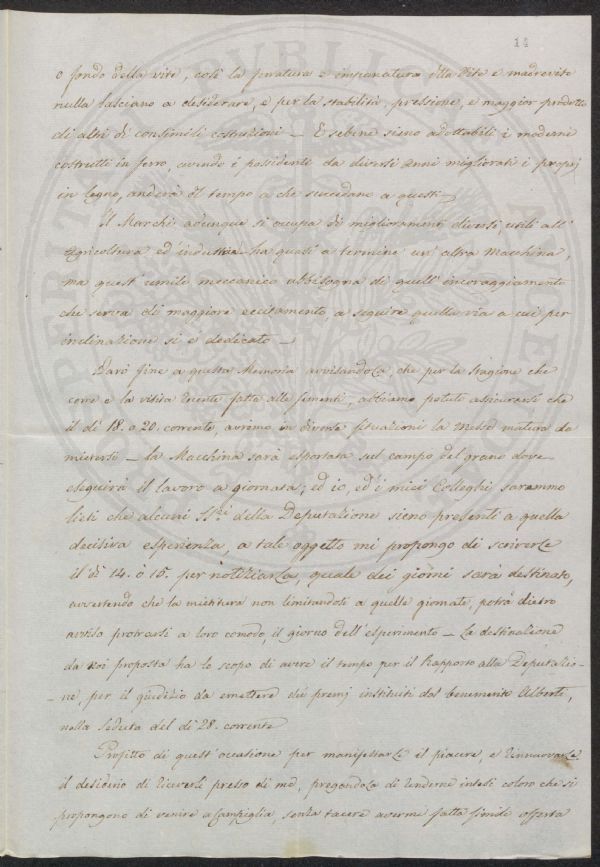 14
o fondo della vite, così la foratura e impanatura della Vite e madrevite
nulla lasciano a desiderare, e per la stabilità, pressione, e maggior prodotto
di altri di consimili costruzioni — E sebene sieno adottabili i moderni
costrutti in ferro, avendo i possidenti da diversi anni migliorati i proprj
in legno, anderà il tempo a che succedano a questi —
Il Marchi adunque si occupa di miglioramenti diversi utili all'
agricoltura ed industria ha quasi a termine un' altra Macchina,
ma quest' umile meccanico abbisogna di quell' incoraggiamento
che serva di maggiore eccitamento, a seguire quella via a cui per
inclinazione si è dedicato —
Darò fine a questa Memoria avvisandola che per la stagione che
corre e la visita recente fatta alle sementi, abbiamo potuto assicurarsi che
il dì 18. o 20. corrente, avremo in diverse situazioni la messe matura da
mietersi — la Macchina sarà esportata sul campo del grano dove
eseguirà il lavoro a giornata; ed io, ed i miei Colleghi saremmo
lieti che alcuni SSri della Deputazione sieno presenti a quella
decisiva esperienza, a tale oggetto mi propongo di scriverle
il dì 14. ò 15. per notiziarla, quale dei giorni sarà destinato,
avvertendo che la mietitura non limitandosi a quelle giornate, potrà dietro
avviso protrarsi a loro comodo, il giorno dell' esperimento — La destinazione
da noi proposta ha lo scopo di avere il tempo per il Rapporto alla Deputazio-
-ne, per il giudizio da emettere dei premj instituiti dal benemerito Alberti,
nella Seduta del dì 28. corrente
Profitto di quest' occasione per manifestarle il piacere, e rinnuovarle
il desiderio di riceverli presso di me, pregandola di renderne intesi coloro che si
propongono di venire a Campiglia, senza tacere averne fatta simile offerta
PUBLICAE